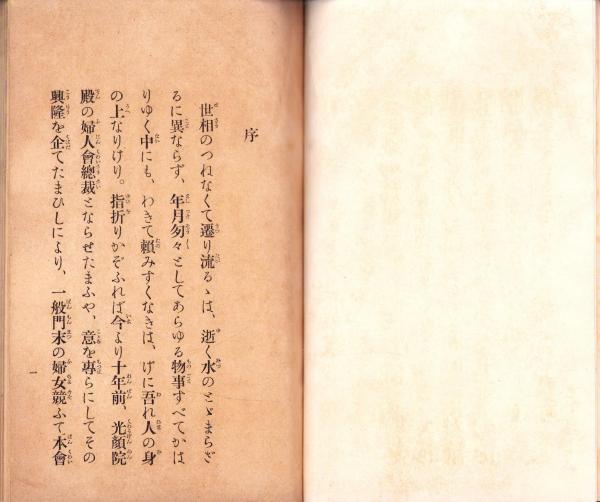 序
世相のつねなくて遷り流るゝは、逝く水のとゞまらざ
るに異ならず、年月匆々としてあらゆる物事すべてかは
りゆく中にも、わきて賴みすくなきは、げに吾れ人の身
の上なりけり。指折りかぞふれば今より十年前、光顏院
殿の婦人會總裁とならせたまふや、意を專らにしてその
興隆を企てたまひしにより、一般門末の婦女競ふて本會
一